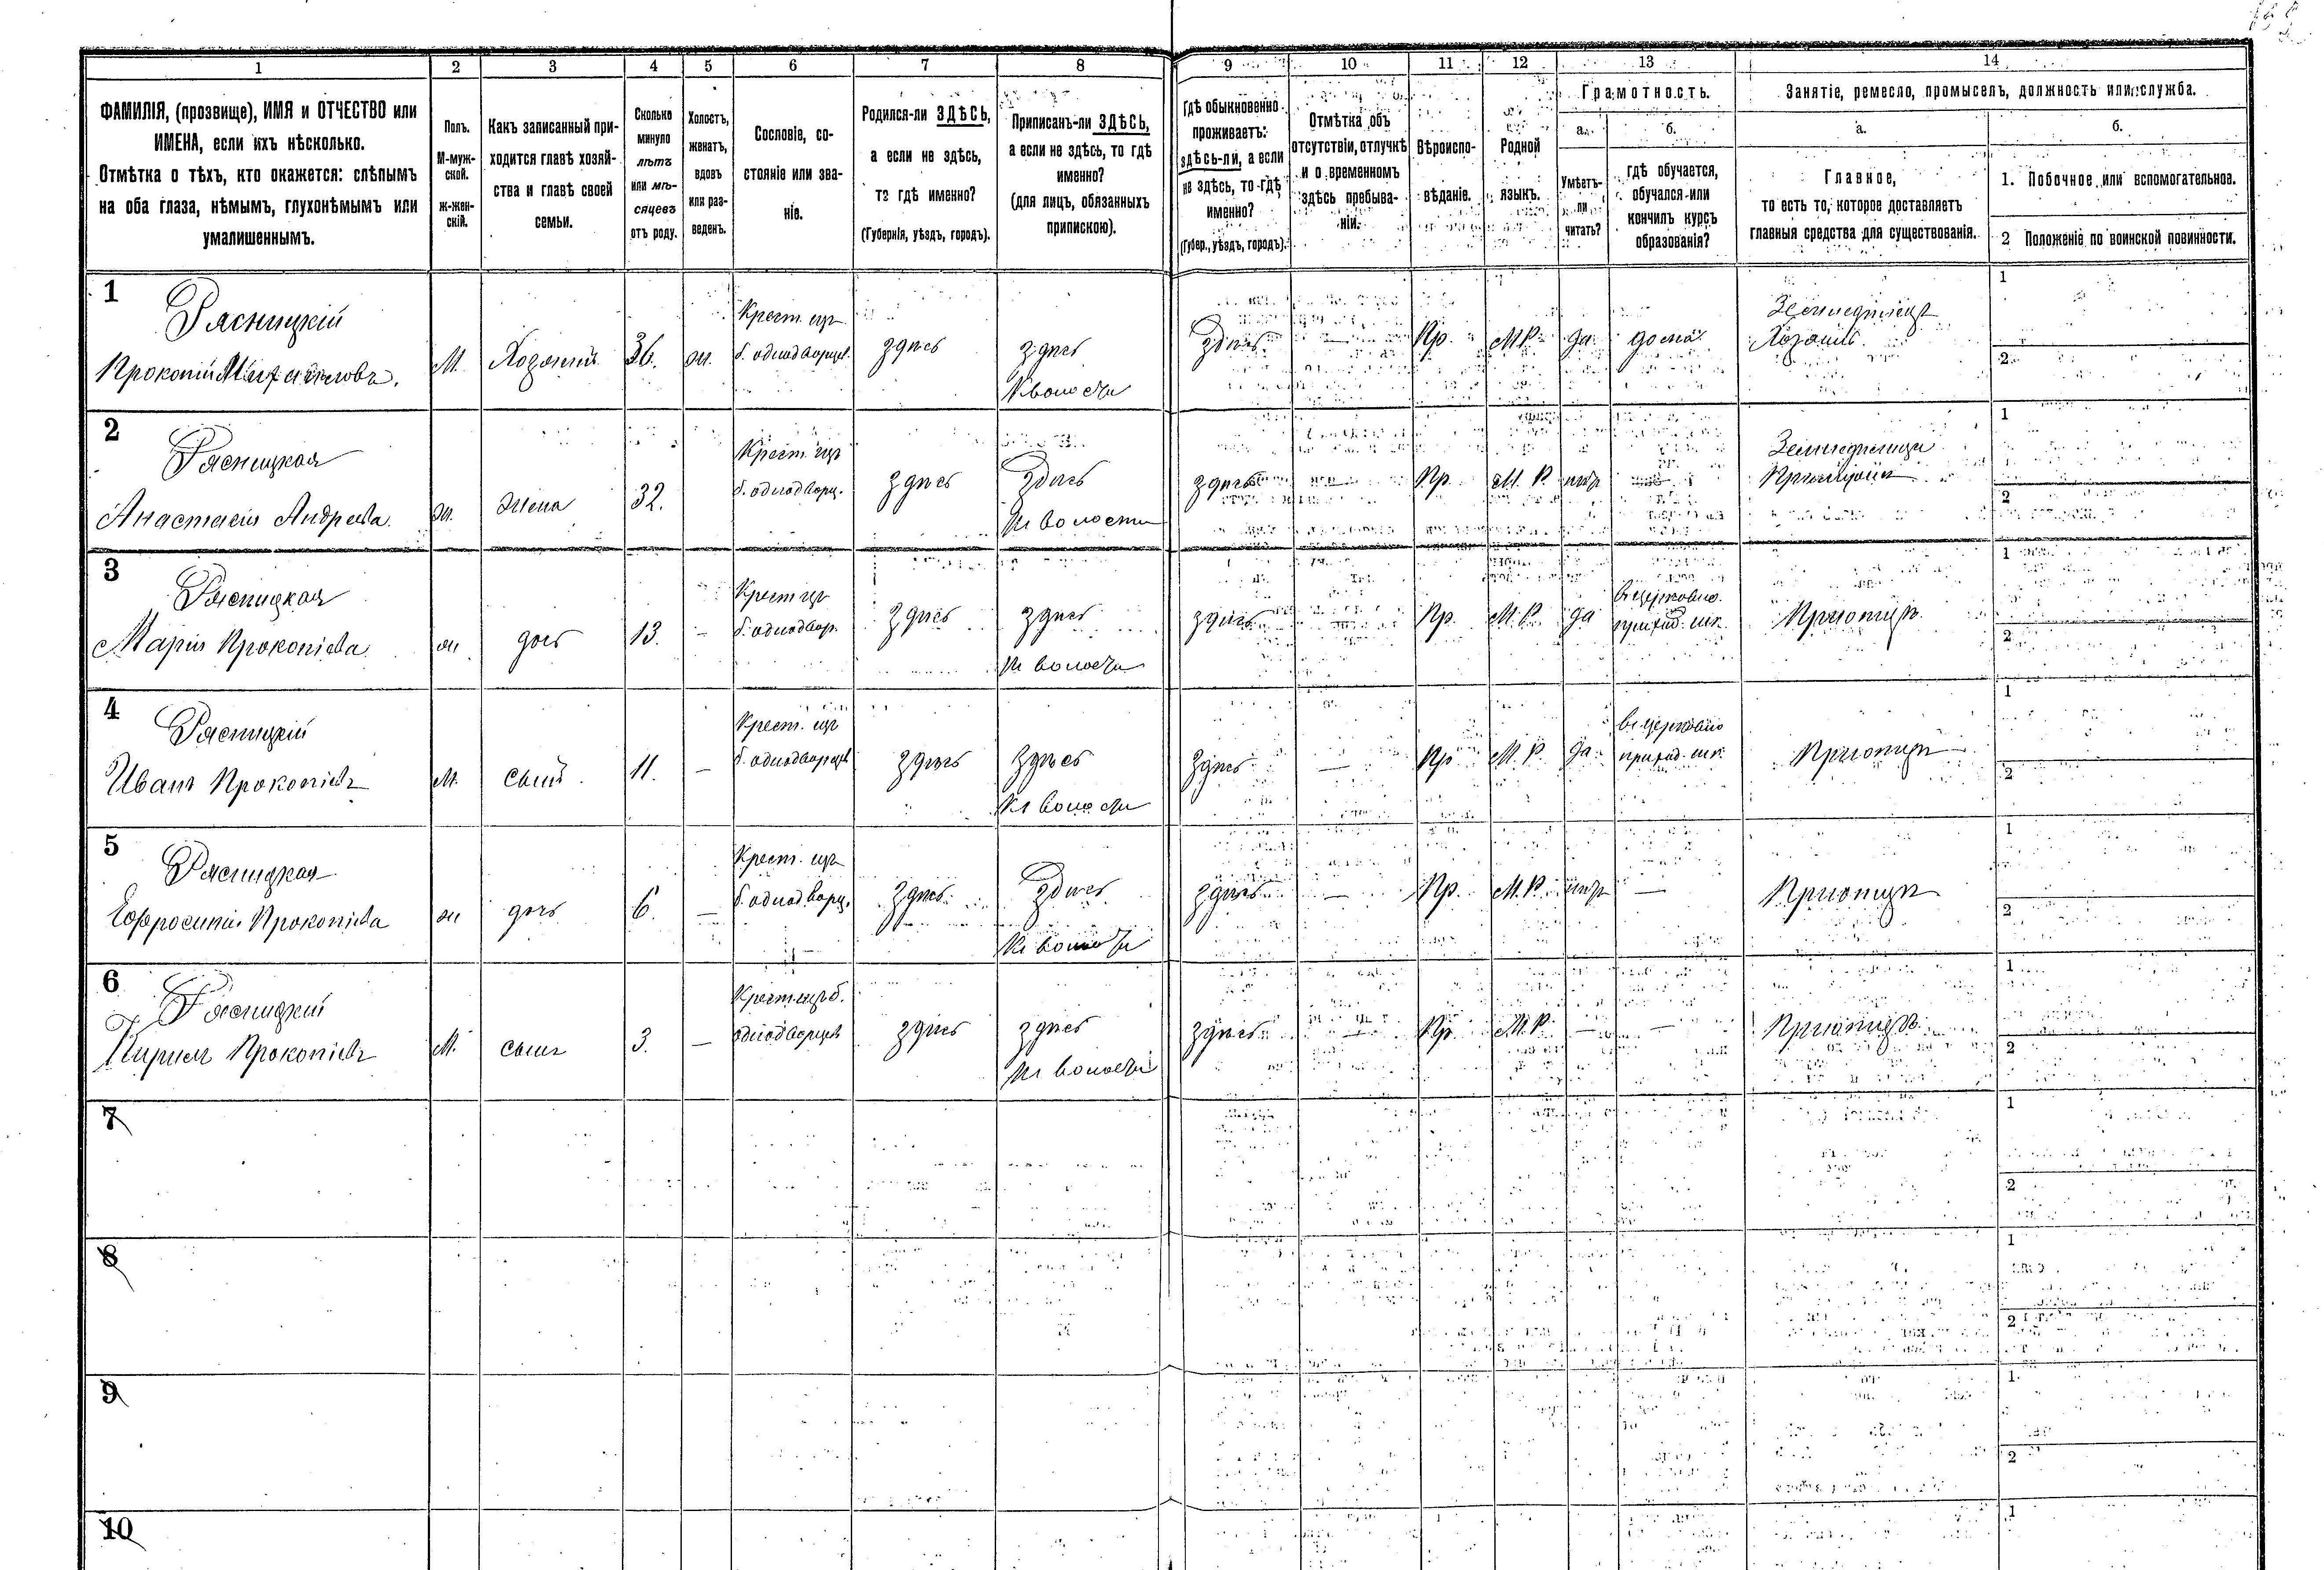 1 2 3 4 5 6 7 8 9 10 11 12 13 14
ФАМИЛІЯ, (прозвище), ИМЯ и ОТЧЕСТВО или
ИМЕНА, если ихъ нѣсколько.
Отмѣтка о тѣхъ, кто окажется: слѣпымъ
на оба глаза, нѣмымъ, глухонѣмымъ или
умалишеннымъ.
Полъ.
М-муж-
ской.
ж-жен-
скій.
Какъ записанный при-
ходится главѣ хозяй-
ства и главѣ своей
семьи.
Сколько
минуло
лѣтъ
или мѣ-
сяцевъ
отъ роду.
Холостъ,
женатъ,
вдовъ
или раз-
веденъ.
Сословіе, со-
стояніе или зва-
ніе.
Родился-ли ЗДѢСЬ,
а если не здѣсь,
то гдѣ именно?
(Губернія, уѣздъ, городъ).
Приписанъ-ли ЗДѢСЬ,
а если не здѣсь, то гдѣ
именно?
(для лицъ, обязанныхъ
припискою).
Гдѣ обыкновенно
проживаетъ:
здѣсь-ли, а если
не здѣсь, то гдѣ
именно?
(Губер., уѣздъ, городъ).
Отмѣтка объ
отсутствіи, отлучкѣ
и о временномъ
здѣсь пребыва-
ніи.
Вѣроиспо-
вѣданіе.
Родной
языкъ.
Грамотность.
а.
Умѣетъ-
ли
читать?
б.
гдѣ обучается,
обучался или
кончилъ курсъ
образованія?
Занятіе, ремесло, промыселъ, должность или служба.
а.
Главное,
то есть то, которое доставляетъ
главныя средства для существованія.
б.
1. Побочное или вспомогательное.
2 Положеніе по воинской повинности.
1
Рясницкій
Прокопій Михайловъ.
М. Хозяинъ 36. ж.
Крест. изъ
б. однодворцев.
здѣсь здѣсь
К волости
здѣсь — Пр. М.Р. да дома
Земледѣлецъ
Хозяинъ.
1
2
2
Рясницкая
Анастасія Андреева.
ж. жена 32.
Крест. изъ
б. однодворц.
здѣсь здѣсь
К волости
здѣсь — Пр. М.Р. нѣтъ —
1
2
3
Рясницкая
Марія Прокопіева
ж дочь 13. —
Крест изъ
б. однодвор.
здѣсь здѣсь
К волости
здѣсь — Пр. М.Р. да
въ церковно
приход. шк.
1
2
4
Рясницкій
Иванъ Прокопіевъ
М. сынъ. 11. —
Крест. изъ
б. однодворцевъ
здѣсь здѣсь
К волости
здѣсь — Пр М.Р. да
въ церковно
приход. шк.
1
2
5
Рясницкая
Ефросинія Прокопіева
ж дочь 6. —
Крест. изъ
б. однодворц.
здѣсь здѣсь
К волости
здѣсь — Пр. М.Р. нѣтъ —
1
2
6
Рясницкій
Кирилъ Прокопіевъ
М. сынъ 3. —
Крест. изъ б.
однодворцевъ
здѣсь здѣсь
К волости
здѣсь — Пр. М.Р. — —
1
2
7
1
2
8
1
2
9
1
2
10
1